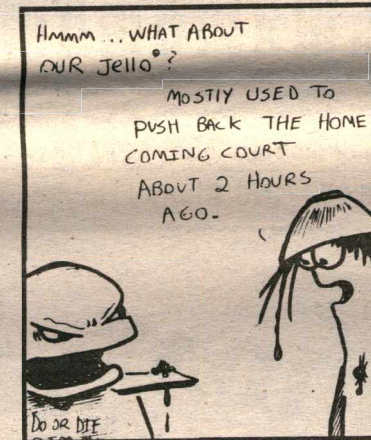 Hmmm ... WHAT ABOUT
OUR Jello®?
MOSTLY USED TO
PUSH BACK THE HOME
COMING COURT
ABOUT 2 HOURS
AGO.
DO OR DIE